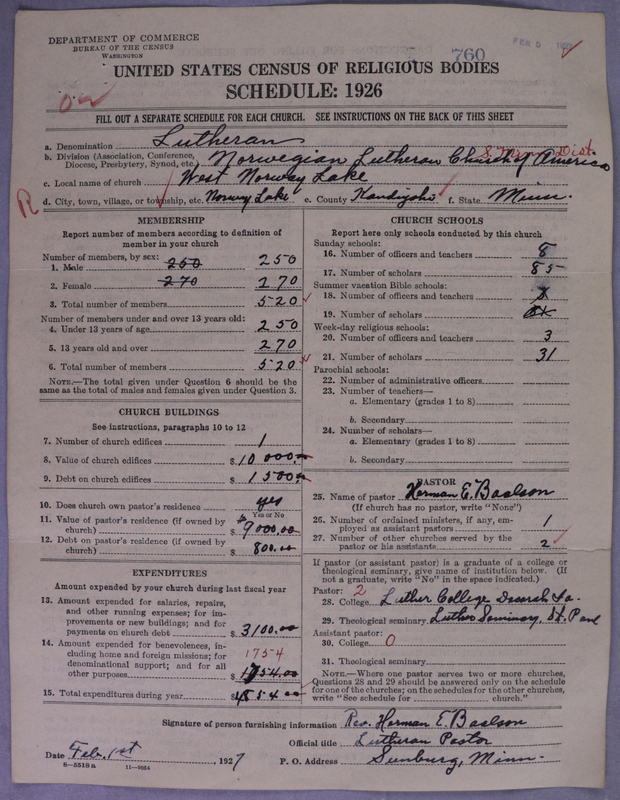 DEPARTMENT OF COMMERCE
BUREAU OF THE CENSUS
WASHINGTON
760
FEB 5 1927
UNITED STATES CENSUS OF RELIGIOUS BODIES
SCHEDULE: 1926
FILL OUT A SEPARATE SCHEDULE FOR EACH CHURCH. SEE INSTRUCTIONS ON THE BACK OF THIS SHEET
a. Denomination Lutheran
b. Division (Association, Conference, Diocese, Presbytery, Synod, etc.) Norwegian Lutheran Church of America
c. Local name of church West Norway Lake
R
d. City, town, village, or township, etc. Norway Lake e. County Kandiyohi f. State Minn.
MEMBERSHIP
Report number of members according to definition of
member in your church
Number of members, by sex:
1. Male 250 250
2. Female 270 270
3. Total number of members 520
Number of members under and over 13 years old:
4. Under 13 years of age 250
5. 13 years old and over 270
6. Total number of members 520
NOTE.—The total given under Question 6 should be
the same as the total of males and females given under Question 3.
CHURCH BUILDINGS
See instructions, paragraphs 10 to 12
7. Number of church edifices 1
8. Value of church edifices $10000.00
9. Debt on church edifices $1500
10. Does church own pastor's residence yes
Yes or No
11. Value of pastor's residence (if owned by
church) $9000.00
12. Debt on pastor's residence (if owned by
church) $800.00
EXPENDITURES
Amount expended by your church during last fiscal year
13. Amount expended for salaries, repairs,
and other running expenses; for im-
provements or new buildings; and for
payments on church debt $3100.00
14. Amount expended for benevolences, in-
cluding home and foreign missions; for
denominational support; and for all
other purposes 1754 $1754.00
15. Total expenditures during year
CHURCH SCHOOLS
Report here only schools conducted by this church
Sunday schools:
16. Number of officers and teachers 8
17. Number of scholars 85
Summer vacation Bible schools:
18. Number of officers and teachers
19. Number of scholars
Week-day religious schools:
20. Number of officers and teachers 3
21. Number of scholars 31
Parochial schools:
22. Number of administrative officers
23. Number of teachers—
a. Elementary (grades 1 to 8)
b. Secondary
24. Number of scholars—
a. Elementary (grades 1 to 8)
b. Secondary
PASTOR
25. Name of pastor Herman E. Baalson
(If church has no pastor, write "None")
26. Number of ordained ministers, if any, em-
ployed as assistant pastors 1
27. Number of other churches served by the
pastor or his assistants 2
If pastor (or assistant pastor) is a graduate of a college or
theological seminary, give name of institution below. (If
not a graduate, write "No" in the space indicated.)
Pastor: 2
28. College Luther College Decorah Ia.
29. Theological seminary Luther Seminary, St. Paul
Assistant pastor:
30. College 0
31. Theological seminary
NOTE.—Where one pastor serves two or more churches,
Questions 28 and 29 should be answered only on the schedule
for one of the churches; on the schedules for the other churches,
write "See schedule for church."
Signature of person furnishing information Rev. Herman E. Baalson
Official title Lutheran Pastor
Date Feb. 1st, 1927 P. O. Address Sunburg, Minn.
8—5518a 11—9054